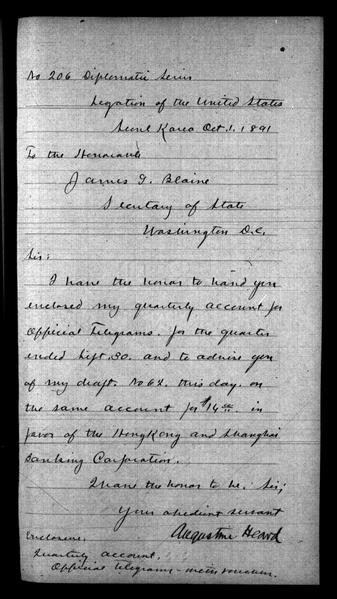 No 206 Diplomatic Series
Legation of the United States
Seoul Korea Oct. 1. 1891
To the Honorable
James G. Blaine
Secretary of State
Washington D.C.
Sir:
I have the honor to hand you
enclosed my quarterly account for
Official Telegrams. for the quarter
ended Sept. 30. and to advise you
of my draft. No 62. this day. on
the same account for $14 in
favor of the HongKong and Shanghai
Banking Corporation.
I have the honor to be. Sir;
Your obedient servant
Augustine Heard
Enclosure.
Quarterly account.
Official Telegrams - with voucher.